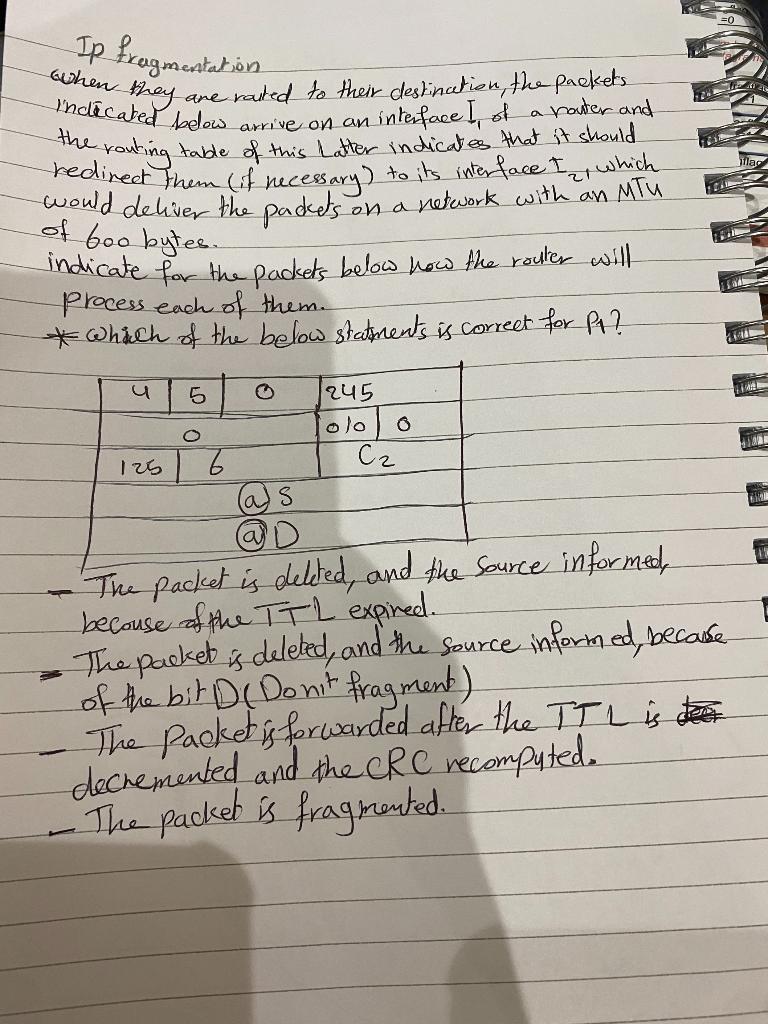 Ip fragmentation
when they are routed to their destination, the packets
indicated below arrive on an interface I1 of a router and
the routing table of this latter indicates that it should
redirect them (if necessary) to its interface I2, which
would deliver the packets on a network with an MTU
of 600 bytes.
indicate for the packets below how the router will
process each of them.
* which of the below statments is correct for P1?
4 5 0 245
0 010 0
125 6 C2
@ S
@ D
- The packet is deleted, and the source informed,
because of the TTL expired.
- The packet is deleted, and the source informed, because
of the bit D (Don't fragment)
- The Packet is forwarded after the TTL is
decremented and the CRC recomputed.
- The packet is fragmented.
=0